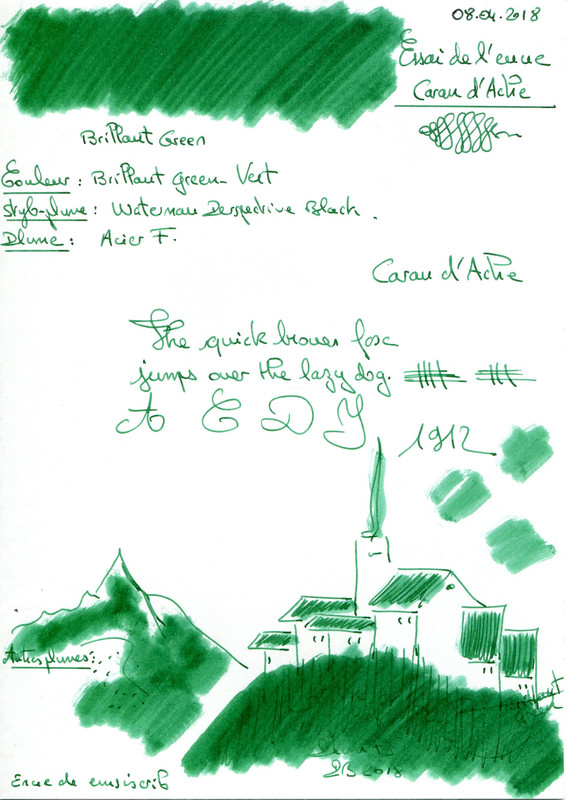 08.04.2018
Essai de l'encre
Caran d'Ache
Brillant Green
Couleur : Brillant green - Vert
Stylo-plume : Waterman Perspective Black.
Plume : Acier F.
Caran d'Ache
The quick brown fox
jumps over the lazy dog.
A E D Y 1912
Autres plumes :
2018
Encre de